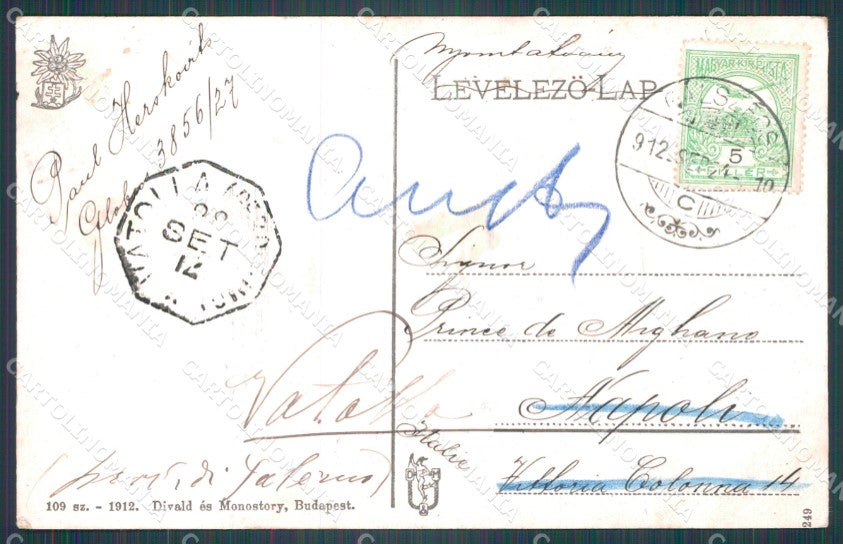 Nyomtatvány
LEVELEZŐ-LAP
MAGYAR KIR. POSTA
5
FILLER
912. SEP. 24.
C
Paul Herskovits
Globus 3856/27
VATOLLA
SET
12
Signor
Prince de Mighano
Napoli
Vittoria Colonna 14
Italie
Vatolla
(prov. di Salerno)
109 sz. - 1912. Divald és Monostory, Budapest.
D M
249
CARTOLINOMANIA